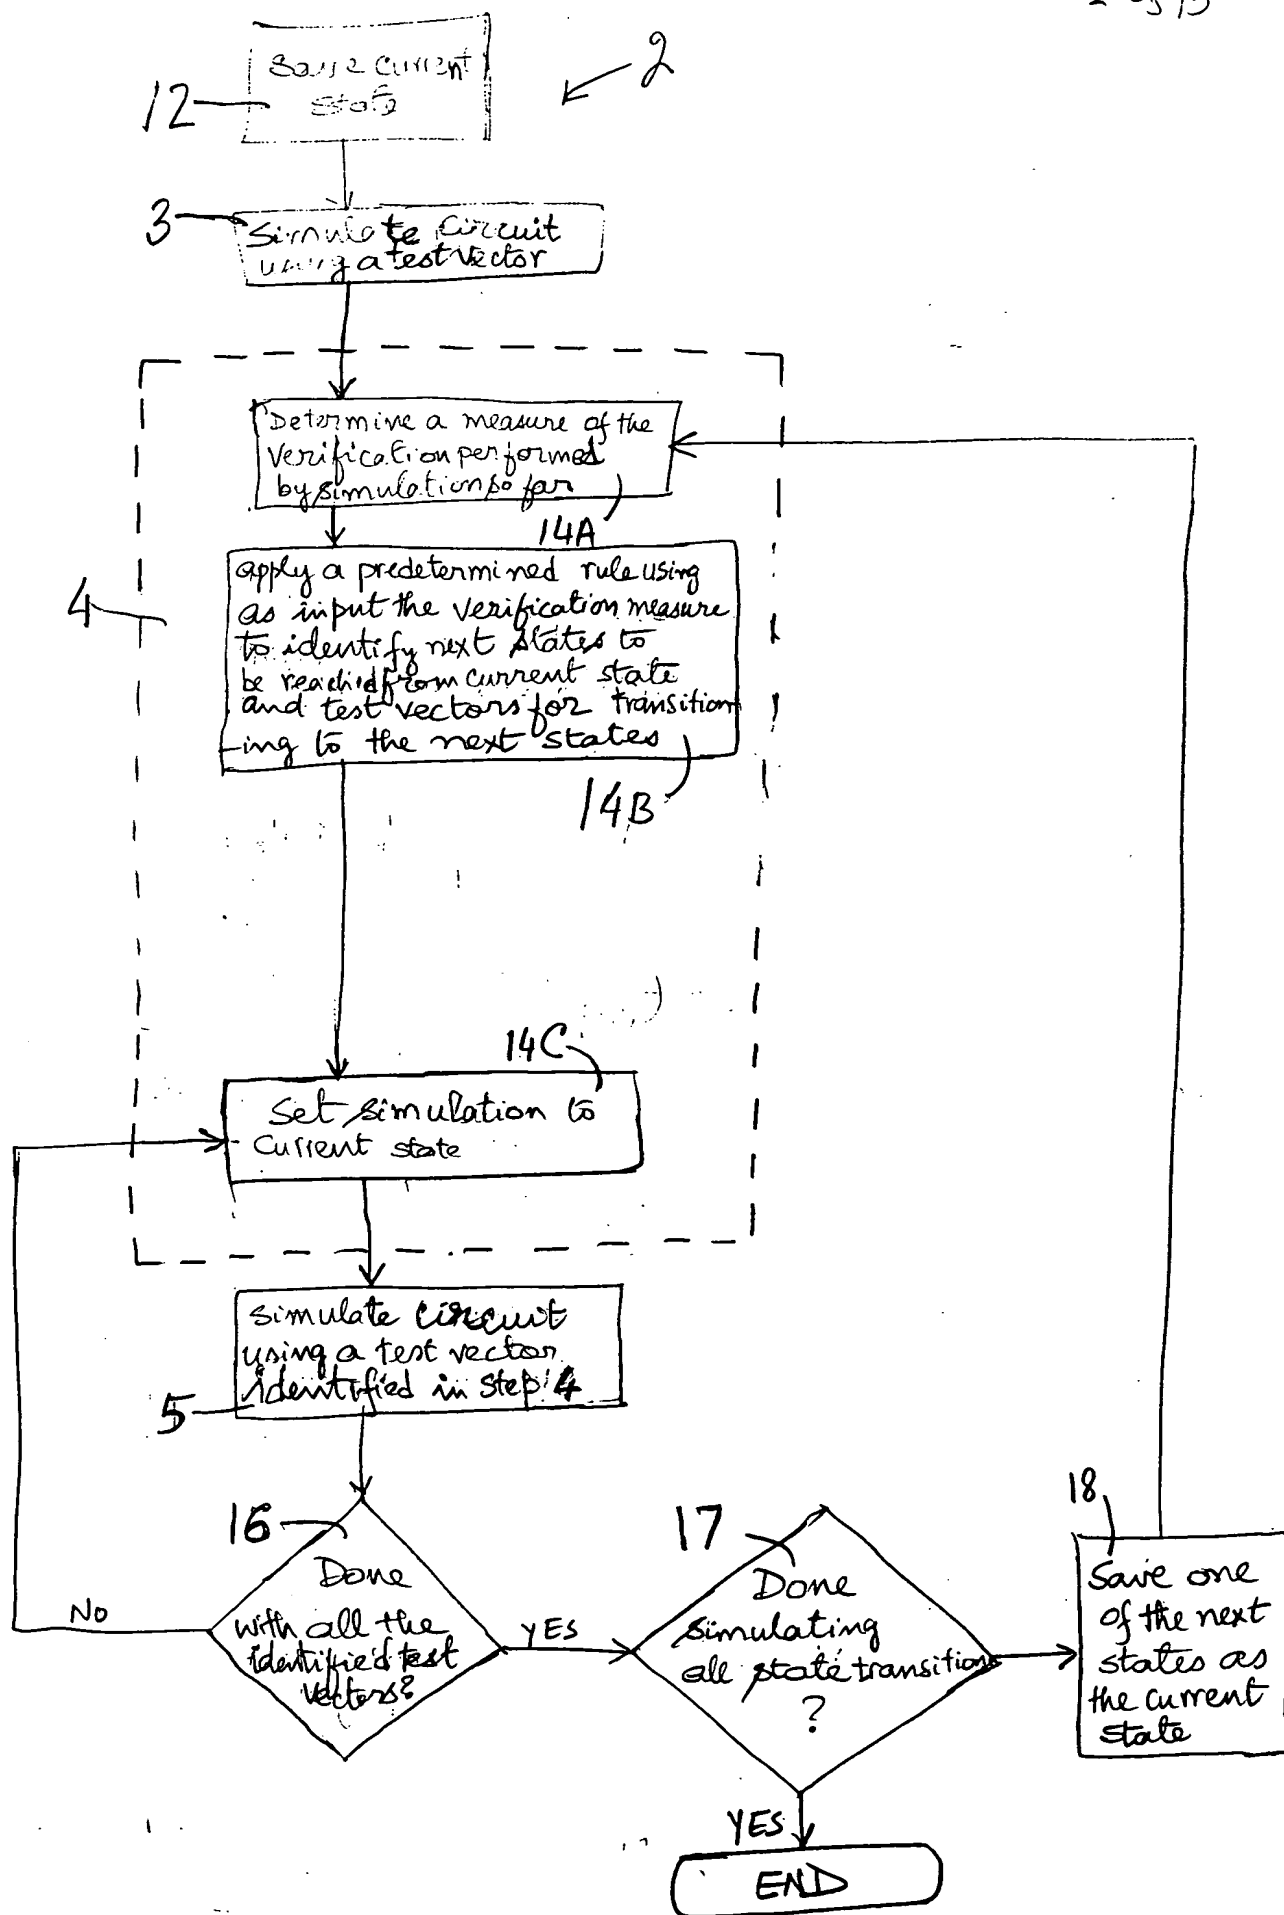 Save current
state
2
12
3
Simulate circuit
using a test vector
Determine a measure of the
verification performed
by simulation so far
14A
4
apply a predetermined rule using
as input the verification measure
to identify next states to
be reached from current state
and test vectors for transition
-ing to the next states
14B
14C
Set simulation to
current state
simulate circuit
using a test vector
identified in step 4
5
16
Done
with all the
identified test
vectors?
No
YES
17
Done
simulating
all state transitions
?
18
Save one
of the next
states as
the current
state
YES
END